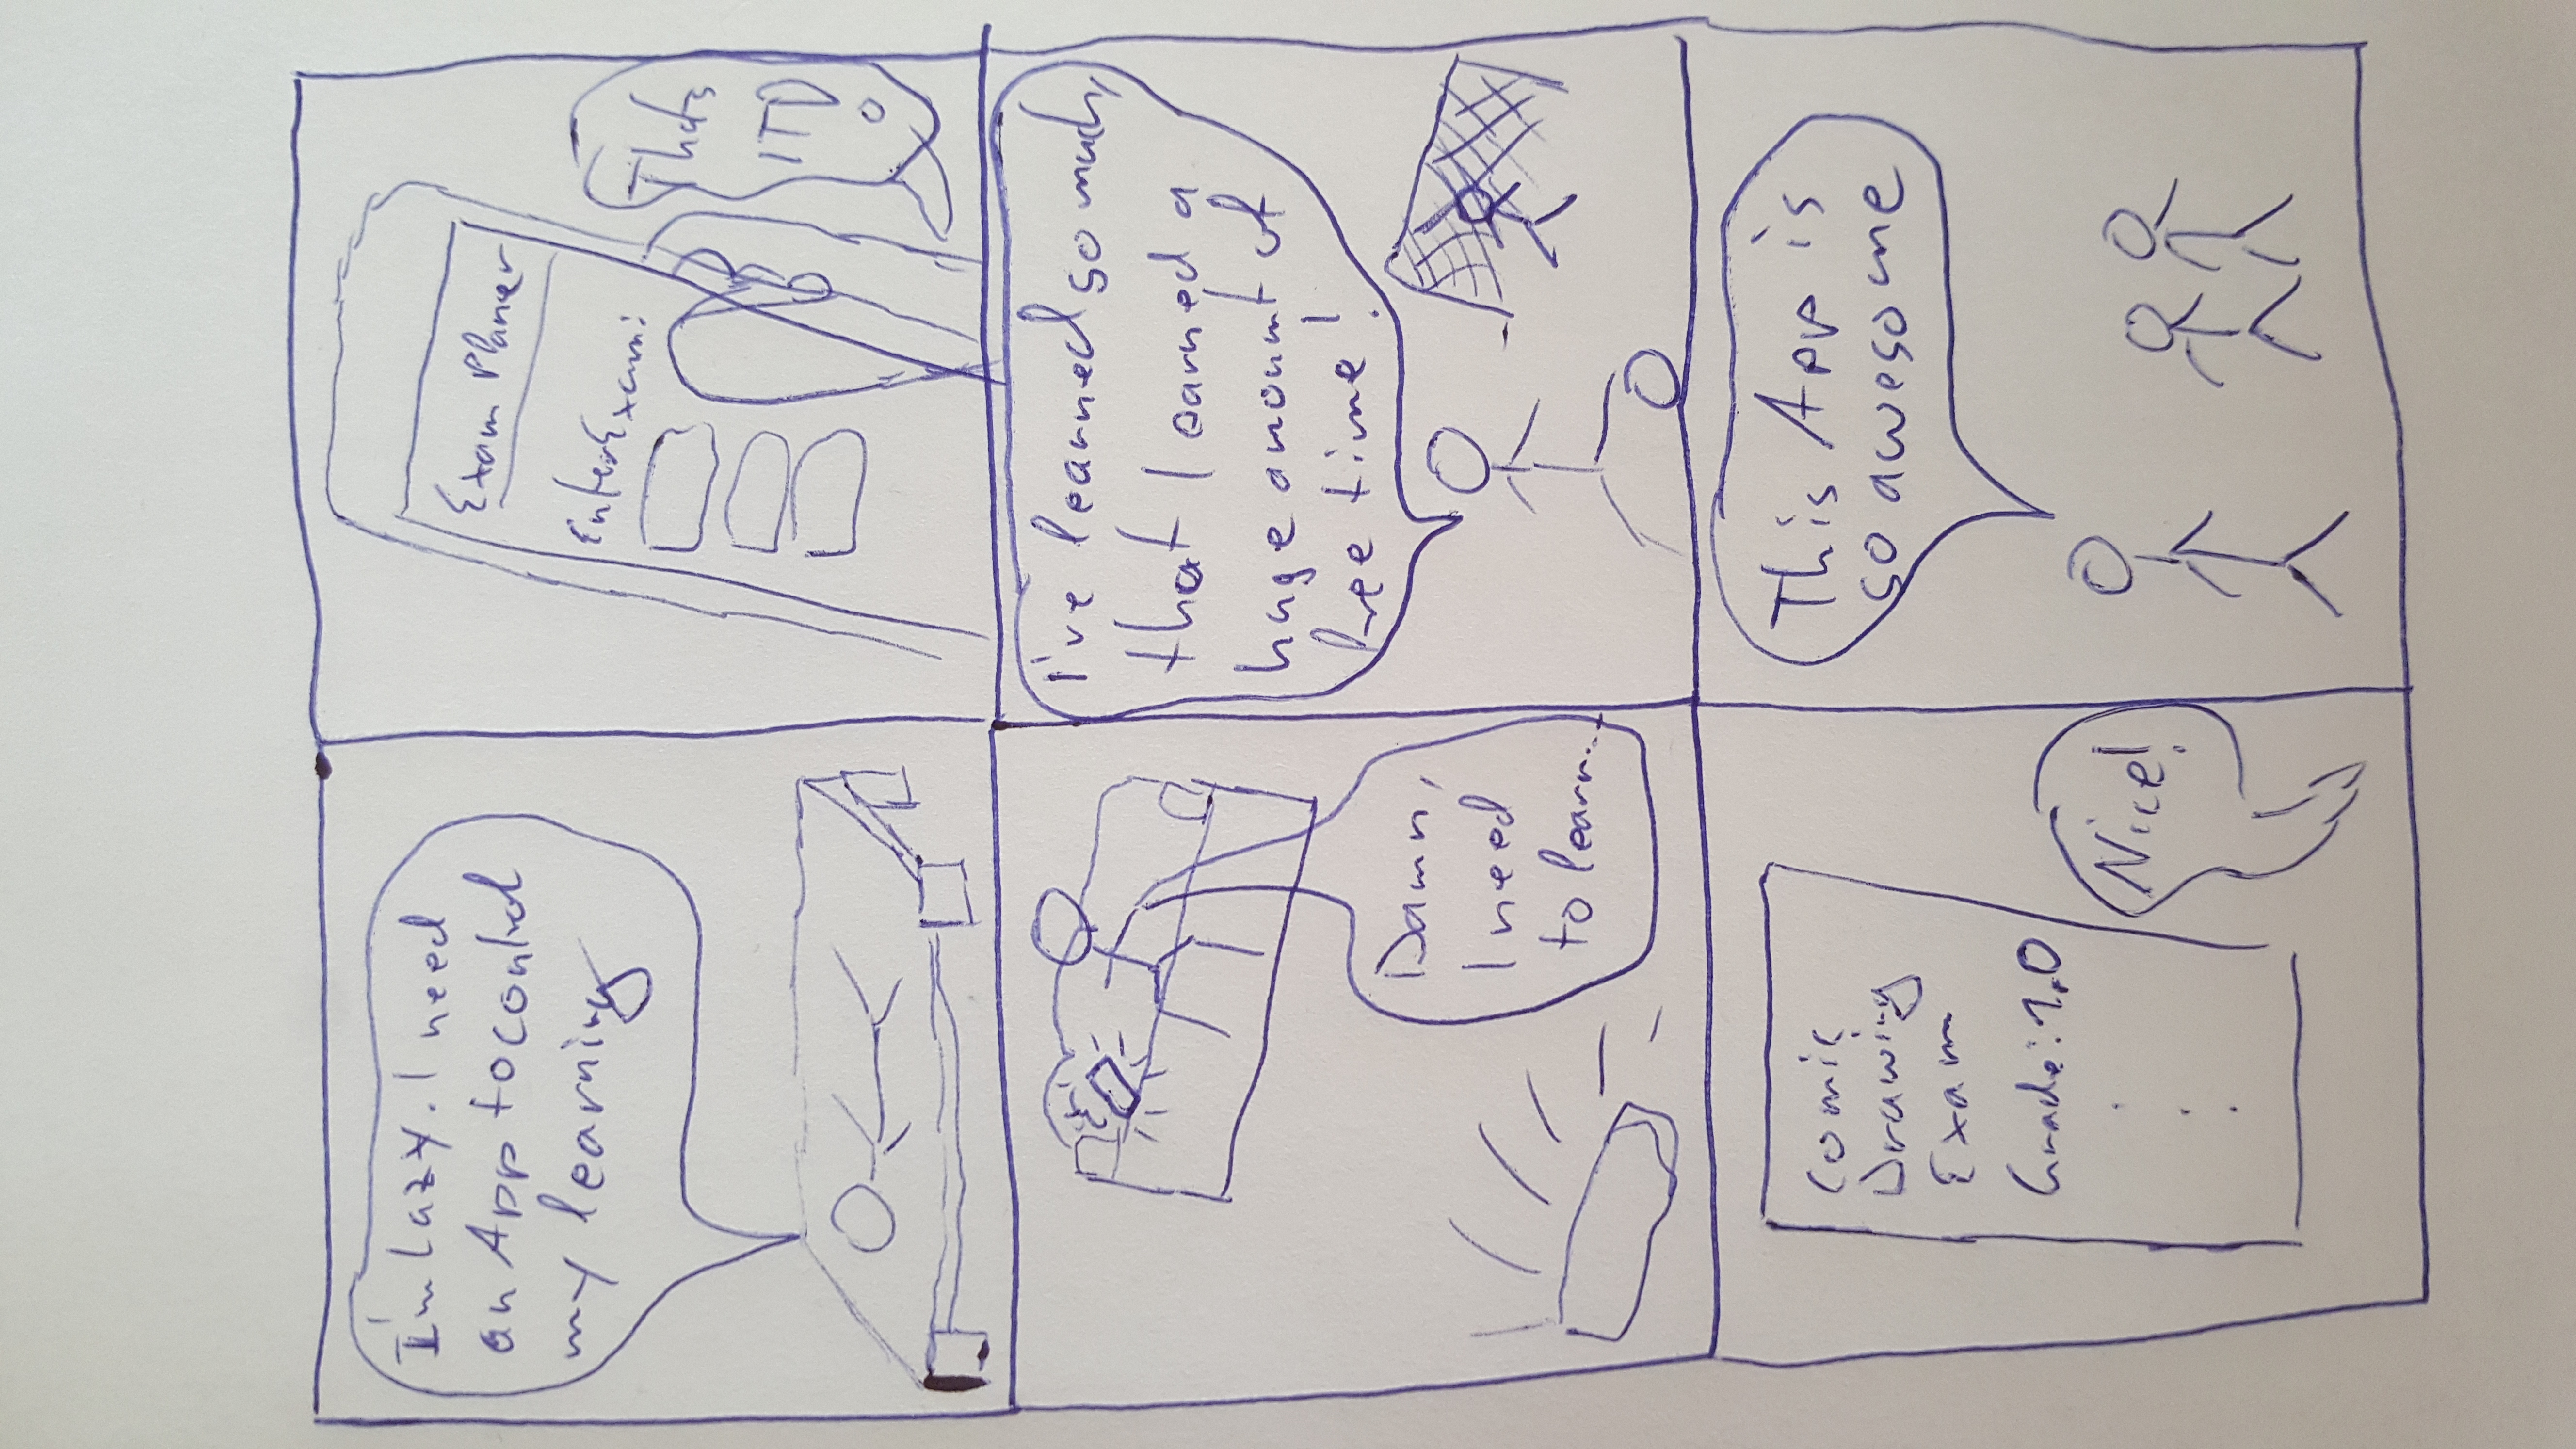 I'm lazy. I need
an App to control
my learning
Exam Planer
Enter Exam:
Thats
IT
I've learned so much,
that I earned a
huge amount of
free time!
Damn,
I need
to learn...
Comic
Drawing
Exam
Grade: 1.0
Nice!
This App is
so awesome